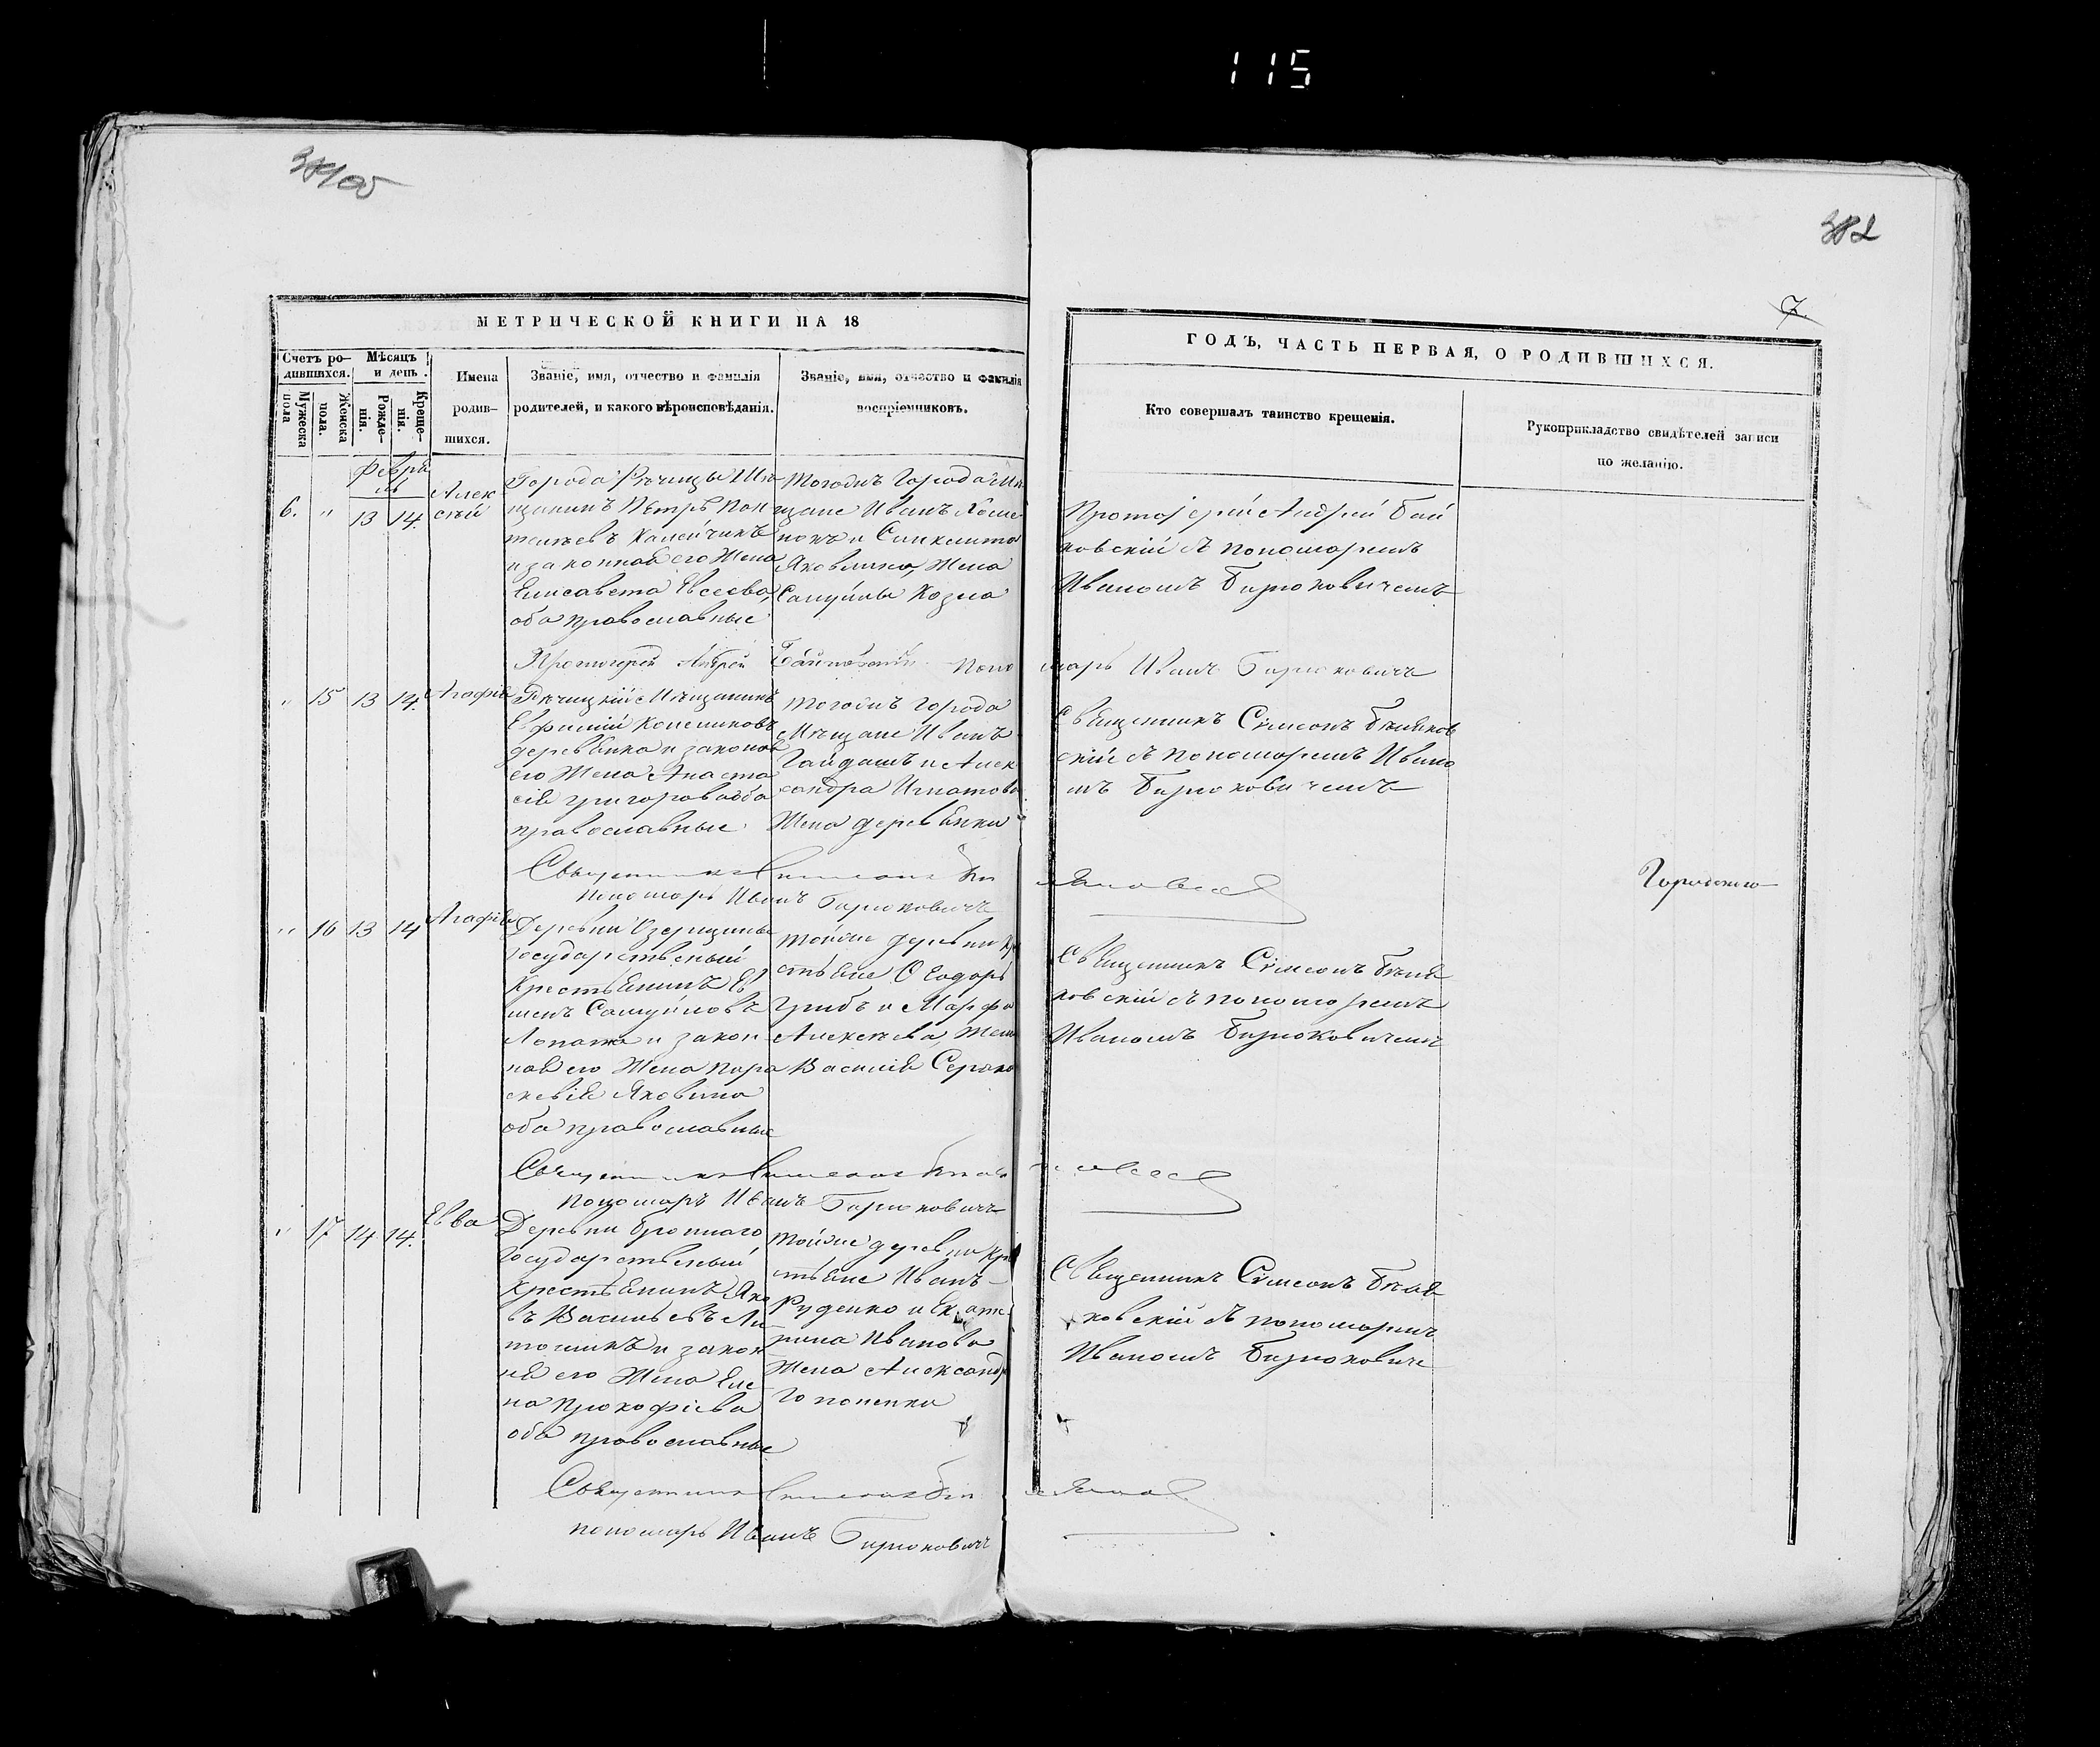 115
382
7.
МЕТРИЧЕСКОЙ КНИГИ НА 18
ГОДЪ, ЧАСТЬ ПЕРВАЯ, О РОДИВШИХСЯ.
Счетъ ро-
дившихся.
Мужеска
пола
Женска
пола.
Мѣсяцъ
и день.
Рожде-
нія.
Креще-
нія.
Имена
родив-
шихся.
Званіе, имя, отчество и фамилія
родителей, и какого вѣроисповѣданія.
Званіе, имя, отчество и фамилія
воспріемниковъ.
Кто совершалъ таинство крещенія.
Рукоприкладство свидѣтелей записи
по желанію.
Февра
ль
6. " 13 14
Алек
сѣй
Города Рѣчицы Мѣ
щанинъ Петръ Пан
телѣевъ
и законная его Жена
Елисавета Евсеева,
оба православные
Тогожъ Города Мѣ
щане Иванъ
и Синклита
Яковлева, Жена
Самуйлы Козла
Протоіерей Андрей Бай
ковскій съ пономаремъ
Иваномъ Бирюковичемъ
Протоіерей Андрей Байковскій Поно
марь Иванъ Бирюковичъ
" 15 13 14.
Агафія
Рѣчицкій Мѣщанинъ
Ефимій Колесниковъ
деревянко и законная
его Жена Анаста
сія Григорова оба
православные
тогожъ Города
Мѣщане Иванъ
Гайдашъ и Алек
сандра Игнатова
Жена деревянки
Священникъ Сімеонъ Бѣляков
скій съ пономаремъ Ивано
мъ Бирюковичемъ
Священникъ Симеонъ
Пономарь Иванъ Бирюковичъ
" 16 13 14
Агафія
Деревни Озерщины
Государственый
Крестьянинъ
Самуйловъ
Лопата и закон
ная его Жена Пара
скевія Яковлева
оба православные
тойже деревни Кре
стьяне Ѳеодоръ
Грибъ и Марфа
Алексѣева, Жена
Василія
Священникъ Сімеонъ Бѣля
ковскій съ пономаремъ
Иваномъ Бирюковичемъ
Священникъ Симеонъ
пономарь Иванъ Бирюковичъ
" 17 14 14.
Евва
Деревни Броннаго
Государственый
Крестьянинъ Яко
въ Васильевъ
и закон
ая его Жена Еле
на Прокофіева
оба православные
тойже деревни Кре
стьяне Иванъ
Руденко и Екате
рина Иванова
Жена Александра
Священникъ Сімеонъ Бѣля
ковскій съ пономаремъ
Иваномъ Бирюковиче
Священникъ Симеонъ
пономарь Иванъ Бирюковичъ